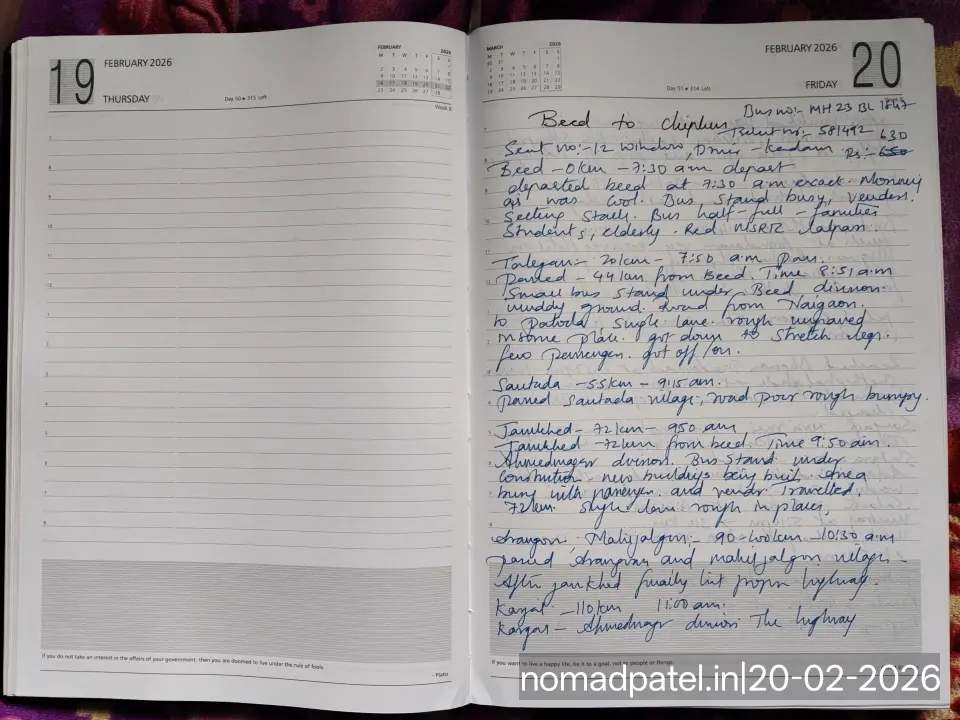 19
FEBRUARY 2026
THURSDAY
Day 50 • 315 Left
FEBRUARY 2026
M T W T F S S
Week 8
If you do not take an interest in the affairs of your government, then you are doomed to live under the rule of fools.
- Plato
MARCH 2026
M T W T F S S
FEBRUARY 2026
20
FRIDAY
Day 51 • 314 Left
Bus no:- MH 23 BL
Beed to Chiplun
Ticket no:- 581492 630
Seat no:- 12 window, Driver - Kadam. Rs:- 650
Beed - 0km - 7:30 am depart
departed beed at 7:30 am exact. Morning
was cool. Bus, Stand busy, venders.
Setting Stalls. Bus half-full - families
Students, elderly. Red MSRTC
- 20km - 7:50 a.m
- 44 km from Beed. Time 8:51 a.m
Small bus stand under Beed division.
muddy ground. Road from Naigaon.
to Patoda. Single lane. rough unpaved
in some place. got down to stretch legs.
few passenger. got off/on.
Sautada - 55km - 9:15 am.
passed Sautada village, road poor rough bumpy.
Jamkhed - 72 km - 950 am
Jamkhed - 72km from beed. Time 9:50 am.
Ahmednagar division. Bus Stand under
constrution new buildings being built. Area
busy with passenger. and vendor. Travelled.
72km. Single lane rough in places,
Arangaon, Mahijalgaon - 90-100km - 10:30 a.m
passed Arangaon and mahijalgaon village.
After jamkhed finally hit proper highway.
Karjat - 110km 11:00 am.
Karjat - Ahmednagar division. The highway
If you want to live a happy life, tie it to a goal, not to people or things.
nomadpatel.in|20-02-2026